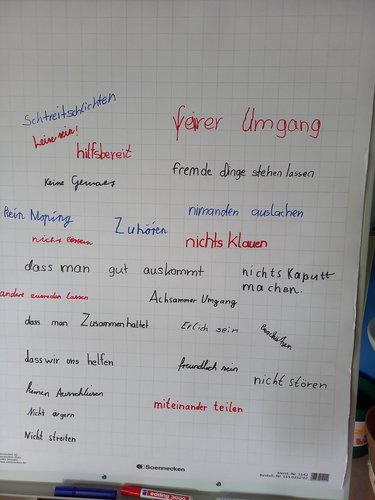 Schtreitschlichten
Leise sein!
feirer Umgang
hilfsbereit
fremde dinge stehen lassen
Keine Gemaes
Kein Moping
Zuhören
nimanden auslachen
nichts Klauen
dass man gut auskommt
nichts kaputt
machen.
andere ausreden lassen
Achsammer Umgang
dass man Zusammenhaltet
Erlich sein
dass wir uns helfen
freundlich sein
nicht stören
keinen Ausschliesen
miteinander teilen
Nicht ärgern
Nicht streiten
Soennecken
edding 3000